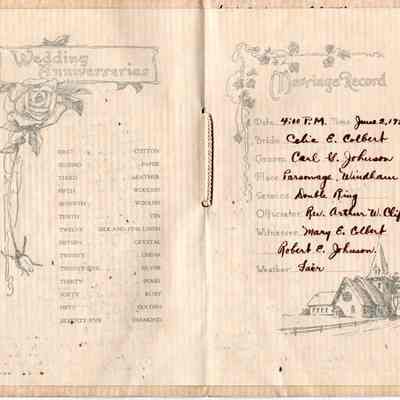 Wedding
Anniversaries
FIRST COTTON
SECOND PAPER
THIRD LEATHER
FIFTH WOODEN
SEVENTH WOOLEN
TENTH TIN
TWELVE SILK AND FINE LINEN
FIFTEEN CRYSTAL
TWENTY CHINA
TWENTY-FIVE SILVER
THIRTY PEARL
FORTY RUBY
FIFTY GOLDEN
SEVENTY-FIVE DIAMOND
Marriage Record
Date 4:00 P.M. Time June 2, 19
Bride Celia E. Colbert
Groom Carl G. Johnson
Place Parsonage, Windham
Service Double Ring
Officiator Rev. Arthur W. Clif
Witnesses Mary E. Colbert
Robert E. Johnson.
Weather Fair